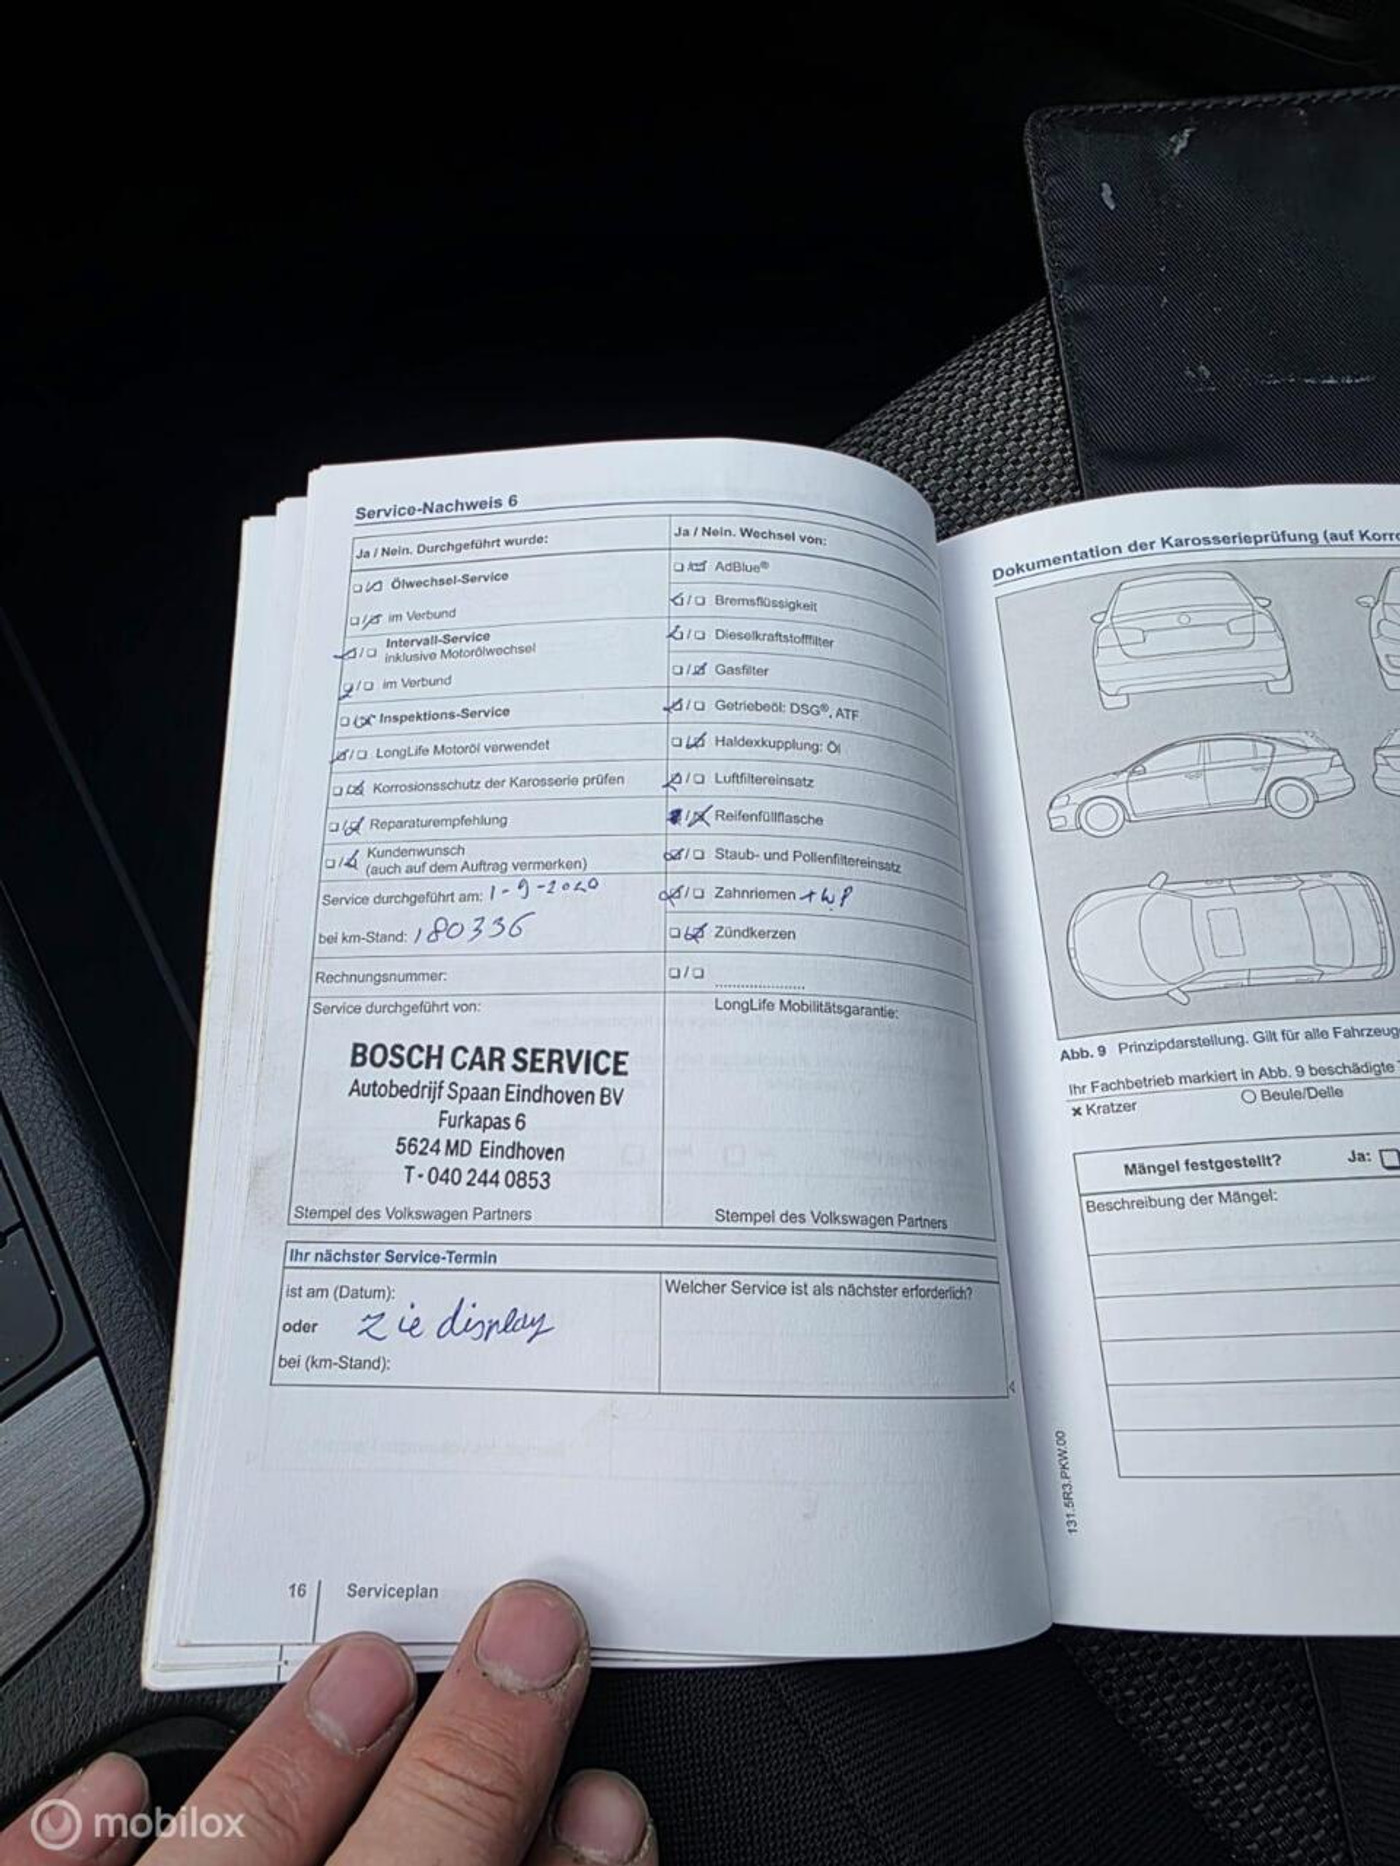 Service-Nachweis 6
Ja / Nein. Durchgeführt wurde:
Ölwechsel-Service
im Verbund
Intervall-Service
inklusive Motorölwechsel
im Verbund
Inspektions-Service
LongLife Motoröl verwendet
Korrosionsschutz der Karosserie prüfen
Reparaturempfehlung
Kundenwunsch
(auch auf dem Auftrag vermerken)
Service durchgeführt am: 1-9-2020
bei km-Stand: 180336
Rechnungsnummer:
Service durchgeführt von:
BOSCH CAR SERVICE
Autobedrijf Spaan Eindhoven BV
Furkapas 6
5624 MD Eindhoven
T- 040 244 0853
Stempel des Volkswagen Partners
Ja / Nein. Wechsel von:
AdBlue®
Bremsflüssigkeit
Dieselkraftstofffilter
Gasfilter
Getriebeöl: DSG®, ATF
Haldexkupplung: Öl
Luftfiltereinsatz
Reifenfüllflasche
Staub- und Pollenfiltereinsatz
Zahnriemen + WP
Zündkerzen
LongLife Mobilitätsgarantie:
Stempel des Volkswagen Partners
Ihr nächster Service-Termin
ist am (Datum):
oder zie display
bei (km-Stand):
Welcher Service ist als nächster erforderlich?
16 Serviceplan
Dokumentation der Karosserieprüfung (auf
Abb. 9 Prinzipdarstellung. Gilt für alle
Ihr Fachbetrieb markiert in Abb. 9 beschädigte
× Kratzer
Beule/Delle
Mängel festgestellt? Ja:
Beschreibung der Mängel:
131.5R3.PKW.00
mobilox